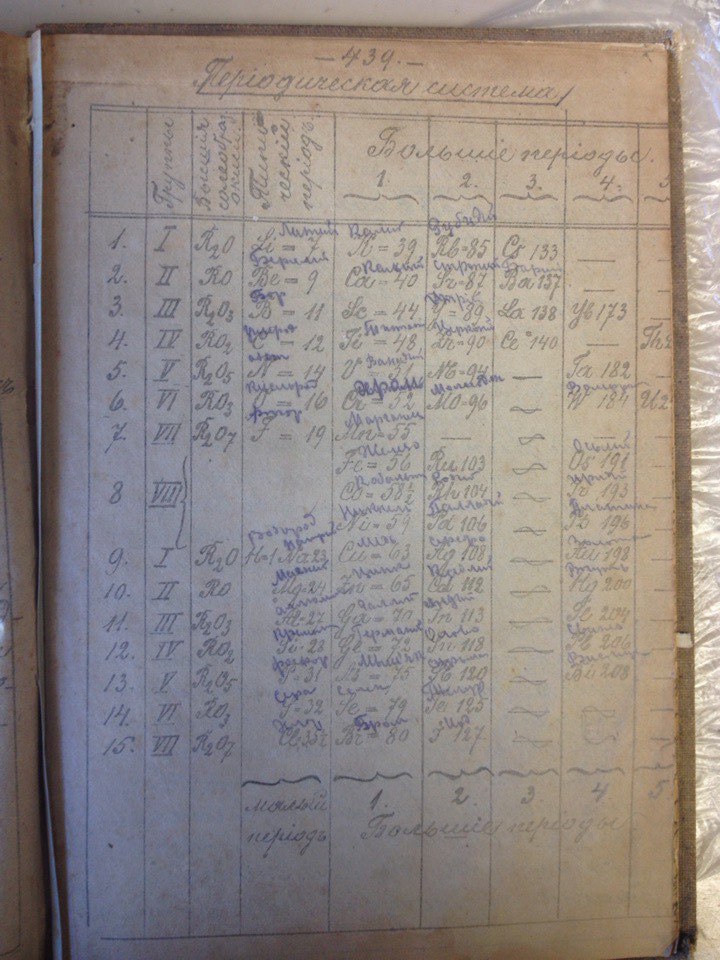 — 439. —
Періодическая система
Группы
Высшия солеобраз. окислы
Типическій періодъ
Большіе періоды.
1. 2. 3. 4. 5
Литий Калий Рубидий
1. I R₂O Li = 7 K = 39 Rb=85 Cs 133 —
Берилий Кальций Стронций Барий
2. II RO Be = 9 Ca = 40 Sr=87 Ba 137 —
Бор
3. III R₂O₃ B = 11 Sc = 44 Y = 89 La 138 Yb 173 —
Титан
4. IV RO₂ C = 12 Ti = 48 Zr=90 Ce 140 — Th
азот Ванадий
5. V R₂O₅ N = 14 V = 51 Nb=94 — Ta 182 —
Кислород Хром Молибден Вольфрам
6. VI RO₃ O = 16 Cr = 52 Mo=96 — W 184 U2
Фтор Марганец
7. VII R₂O₇ F = 19 Mn=55 — — — —
Железо Осмий
Fe = 56 Ru 103 — Os 191 —
Кобальт Родий Иридий
8 VIII Co = 58½ Rh 104 — Ir 193 —
Никкель Палладий Платина
Ni = 59 Pd 106 — Pt 196 —
Водород Натрий Медь Серебро Золото
9. I R₂O H=1 Na 23 Cu = 63 Ag 108 — Au 198 —
Магний Цинк Кадмий Ртуть
10. II RO Mg=24 Zn = 65 Cd 112 — Hg 200 —
Галлий Индий
11. III R₂O₃ Al=27 Ga = 70 In 113 — Tl 204 —
Германий Олово Свинец
12. IV RO₂ Si=28 Ge = 72 Sn 118 — Pb 206 —
Фосфор Мышьяк Висмут
13. V R₂O₅ P=31 As = 75 Sb 120 — Bi 208 —
Сера Селен Телур
14. VI RO₃ S=32 Se = 79 Te 125 — — —
Хлор Бром Иод
15. VII R₂O₇ Cl=35½ Br = 80 J 127 — — —
1. 2. 3 4. 5
малый періодъ
Большіе періоды